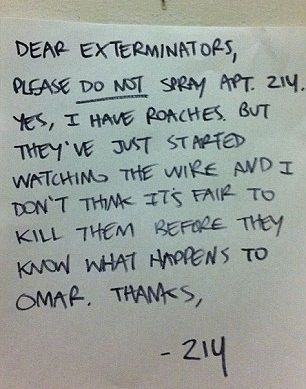 DEAR EXTERMINATORS,
PLEASE DO NOT SPRAY APT. 214.
YES, I HAVE ROACHES. BUT
THEY'VE JUST STARTED
WATCHING THE WIRE AND I
DON'T THINK IT'S FAIR TO
KILL THEM BEFORE THEY
KNOW WHAT HAPPENS TO
OMAR. THANKS,
- 214